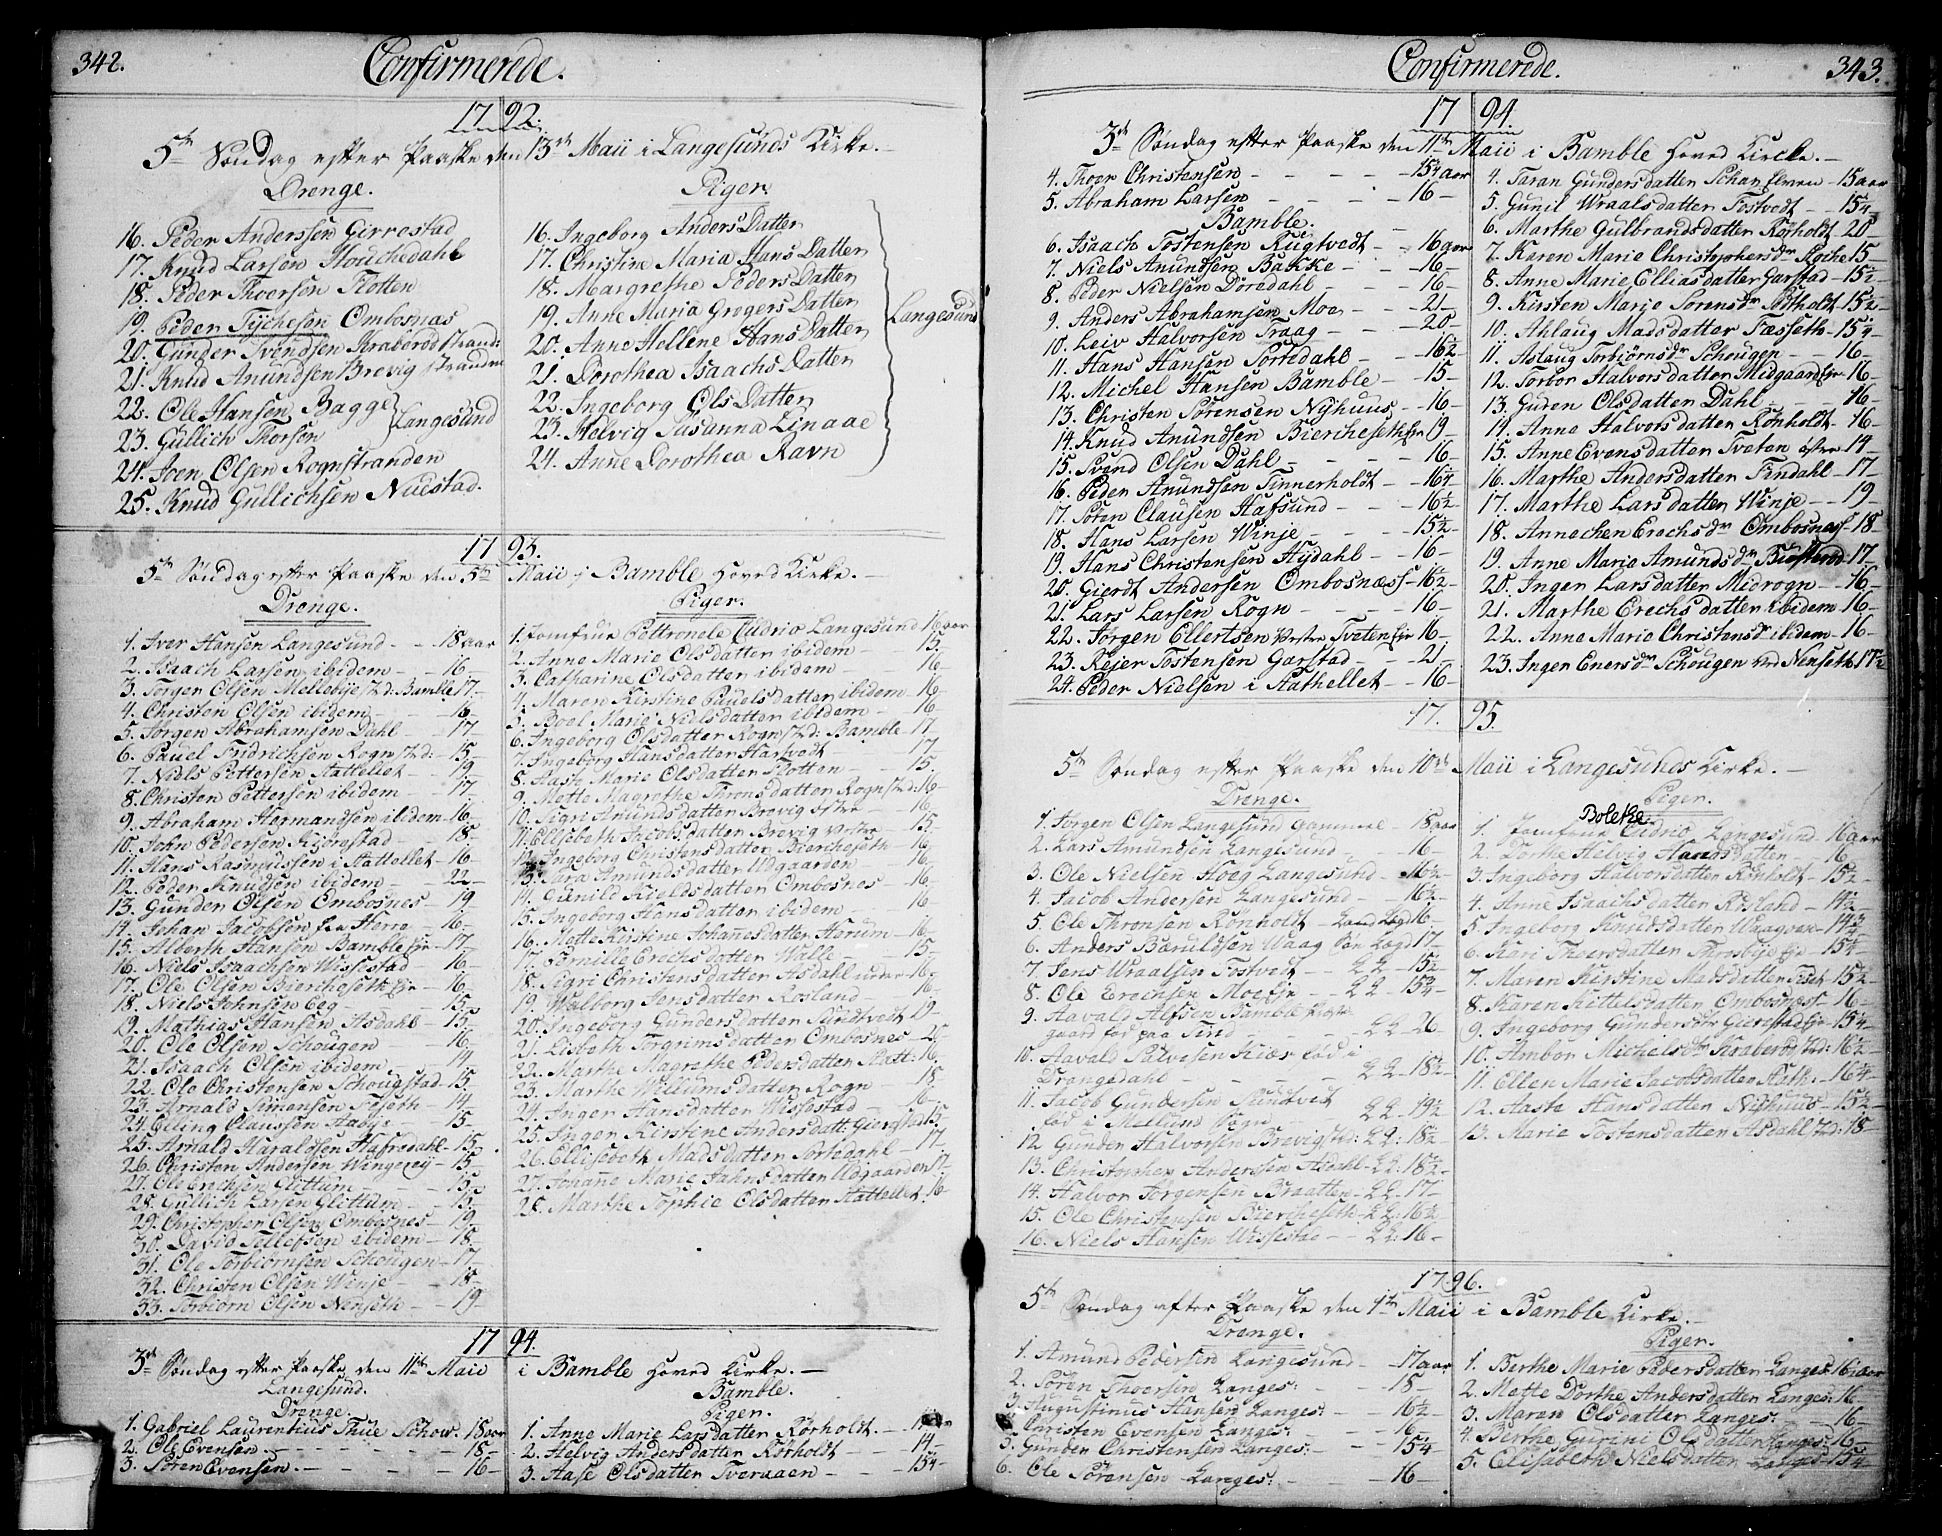 342.
Confirmerede.
1792.
5te Søndag efter Paaske den 13de Maii i Langesunds Kirke.
Drenge.
16. Peder Anderssen Girrestad
17. Knud Larsen Houchedahl
18. Peder Thversen Flotten
19. Peder Tychesen Ombosnæs
20. Gunder Svendsen Kraberød strand:
21. Knud Anundsen Brevig stranden
22. Ole Hansen Bagge
23. Gullich Thorsen
Langesund
24. Joen Olsen Rognstranden
25. Knud Gullichsen Nuestad.
Piger
16. Ingeborg Anders Datter
17. Christine Maria Hans Datter
18. Margrethe Peders Datter
19. Anne Maria Gregers Datter
20. Anne Hellene Hans Datter
21. Dorothea Isaachs Datter
22. Ingeborg Ols Datter
23. Helvig Susanna Linaae
24. Anne Dorothea Ravn
Langesund
1793.
5te Søndag efter Paaske den 5te Maii i Bamble Hoved Kirke.
Drenge.
1. Iver Hansen Langesund - - 18 aar
2. Isaach Larsen ibidem - 16
3. Jørgen Olsen Mellebye st:d: Bamble 17
4. Christen Olsen ibidem - 16
5. Jørgen Abrahamsen Dahl - 17
6. Pauel Fridrichsen Rogn st:d: 15
7. Niels Pettersen Aattellet - 19
8. Christen Pettersen ibidem - 17
9. Abraham Hermandsen ibidem 16
10. John Pedersen Kjørestad - 18
11. Hans Rasmussen i Aattellet - 16
12. Peder Knudsen ibidem - 22
13. Gunder Olsen Ombosnes - 19
14. Johan Jacobsen fra Herre - 16
15. Alberth Hansen Bamble Eje 17
16. Niels Isaachsen Wissestad 16
17. Ole Olsen Biercheseth Eje - 16
18. Niels Johnsen Eeg - 15
19. Mathias Hansen Asdahl - 15
20. Ole Olsen Schougen - 16
21. Isaach Olsen ibidem - 14
22. Ole Christensen Schougstad 15
23. Arnald Simonsen Feseth - 14
24. Eling Claussen Aaby - 15
25. Arnald Haraldsen Hafredahl 15
26. Christen Andersen Wingerej - 15
27. Ole Erechsen Glittum - 15
28. Gullich Larsen Glittum - 15
29. Christopher Olsen Ombosnes - 19
30. David Tellefsen ibidem - 18
31. Ole Torbiornsen Schougen - 17
32. Christen Olsen Winje - 18
33. Torbiorn Olsen Nenseth - 19
Piger.
1. Jomfrue Pettronele Cudrio Langesund 16 aar
2. Anne Marie Olsdatter ibidem - 15
3. Catharine Olsdatter ibidem - 16
4. Maren Kirstine Pauelsdatter ibidem - 16
5. Boel Marie Nielsdatter ibidem - 16
6. Ingeborg Olsdatter Rogn st:d: Bamble 17
7. Ingeborg Hansdatter Hartvedt 17
8. Aaste Marie Olsdatter Flotten - 15
9. Mette Magrethe Thronsdatter Rogn st:d: 16
10. Sigri Anundsdatter Brevig østre - 16
11. Ellsebeth Jacobsdatter Brevig vestre - 15
12. Ingeborg Christensdatter Biercheseth 16
13. Sara Amundsdatter Udgaarden - 16
14. Gunild Kieldsdatter Ombosnes - 16
15. Ingeborg Hansdatter ibidem - 16
16. Mette Kirstine Johannesdatter Hørum - 16
17. Pernille Erechsdatter Walle - 15
18. Sigri Christensdatter Asdahl under 16
19. Walborg Jensdatter Rosland - 16
20. Ingeborg Gundersdatter Sundtvedt 19
21. Lisbeth Torgrimsdatter Ombosnes - 20
22. Marthe Magrethe Pedersdatter Aatt: 16
23. Marthe Willumsdatter Rogn - 18
24. Inger Hansdatter Wissestad - 16
25. Inger Kirstine Andersdatt: Gierestad 15
26. Ellisebeth Madsdatter Sortedahl - 17
27. Johane Marie Jahnsdatter Udgaarden 17
28. Marthe Sophie Olsdatter Aattellet 16
1794.
3de Søndag efter Paaske den 11te Maii i Bamble Hoved Kirke.
Langesund.
Drenge.
1. Gabriel Laurentius Thue Schow. 18 aar
2. Ole Evensen - - - 18
3. Søren Evensen. - - - 16
Bamble.
Piger.
1. Anne Marie Larsdatter Rørholt. -
2. Helvig Andersdatter Rørholdt 14
3. Aase Olsdatter Tveraaen - - - 15¼
Confirmerede.
343.
1794.
3de Søndag efter Paaske den 11te Maii i Bamble Hoved Kircke.
4. Thoer Christensen - - - 15¼ aar
5. Abraham Larsen - - - 16
Bamble.
6. Isaach Tostensen Rugtvedt - 16 aar
7. Niels Anundsen Bakke - - 16
8. Peder Nielsen Doredahl - - 16
9. Anders Abrahamsen Moe - - 21
10. Leiv Halvorsen Traag - - 20
11. Hans Hansen Sortedahl - - 16½
12. Michel Hansen Bamble - - 15
13. Christen Sørensen Nyhuus - 16
14. Knud Anundsen Biercheseth Eje 19
15. Svend Olsen Dahl - - - 16
16. Peder Anundsen Tinnerholdt - 16¼
17. Søren Clausen Hafsund - - 16½
18. Hans Larsen Winje - - - 15½
19. Hans Christensen Hydahl - - 16
20. Gierdt Andersen Ombosnæs - 16½
21. Lars Larsen Rogn - - - 16
22. Jørgen Ellertsen Vestre Tveten Eje 16
23. Rejer Tostensen Garstad - - 21
24. Peder Nielsen i Aathellet - - 16
4. Taran Gundersdatter Schar Elven - 15 aar
5. Gunil Wraalsdatter Tostvedt - - 15¼
6. Marthe Gulbrandsdatter Rørholdt 20
7. Karen Marie Christophersdr Roche 15
8. Anne Marie Elliasdatter Garstad - 15½
9. Kirsten Marie Sørensdr Podtholdt 15½
10. Ahlaug Madsdatter Fæsseth - 15¼
11. Aslaug Torbiørnsdr Schougen - 16
12. Torbor Halvorsdatter Midgaard Eje 16
13. Guren Olsdatter Dahl - - 16
14. Anne Halvorsdatter Rønholdt - 16
15. Anne Evensdatter Tveten østre 14
16. Marthe Andersdatter Findahl - 17
17. Marthe Larsdatter Winje - - 19
18. Annechen Erechsdr Ombosnes 18
19. Anne Marie Amundsdr 17
20. Inger Larsdatter Midrogn - 16
21. Marthe Erechsdatter ibidem 16
22. Anne Marie Christensdr ibidem - 16
23. Inger Enersdr Schougen ved Nenseth 17½
1795.
5te Søndag efter Paaske den 10de Maii i Langesunds Kirke.
Drenge.
1. Jørgen Olsen Langesund Gammel 18 aar
2. Lars Amundsen Langesund - 16
3. Ole Nielsen Høeg Langesund - 16½
4. Jacob Andersen Langesund - 16½
5. Ole Thronsen Rønholdt - Land Sogn 16
6. Anders Baruldsen Waag Søe Sogn 17
7. Jens Wraalsen Tostvedt - LS 15½
8. Ole Erechsen Moe Eje - - LS 15¾
9. Aavald Alfsen Bamble
gaard før paa Tind - - LS 26
10. Aavald Salvesen Kiær fød i
Drangedahl - - - LS - 18½
11. Jacob Gundersen Sundtvet
fød i Mellum Sogn - LS - 19½
12. Gunder Halvorsen Brevig st:d: LS: 18½
13. Christopher Andersen Asdahl - LS: 18½
14. Halvor Jørgensen Braatten - LS - 17
15. Ole Christensen Biercheseth - LS: 16½
16. Niels Hansen Wissestad - - LS: 16
Piger.
Bolette
1. Jomfrue Cudrio Langesund 16 aar
2. Dorthe Helvig Hansdatter - 16
3. Ingeborg Halvorsdatter Rønholdt - 15½
4. Anne Isaachsdatter Risland - 14½
5. Ingeborg Knudsdatter Waagøen - 14¾
6. Kari Thoersdatter Throsbye Eje 15¼
7. Maren Kirstine Madsdatter Feset 15½
8. Karen Kittelsdatter Ombosnæs - 16
9. Ingeborg Gundersdtr Gierestad Eje - 15¼
10. Ambor Michelsdr Kraberød st:d: 16½
11. Ellen Marie Jacobsdatter Aath: - 16¼
12. Aaste Hansdatter Nyhuus - 15½
13. Marie Tostensdatter Asdahl st:d: 18
1796.
5te Søndag efter Paaske den 1te Maii i Bamble Kirke.
Drenge.
1. Amund Pedersen Langesund - 17 aar
2. Søren Thversen Langes: - - 18
3. Augustinus Hansen Langes: - 16½
Christen Evensen Langes: - 16
5. Gunder Christensen Langes: - 15¼
6. Ole Sørensen Langes: - - 16
Piger.
1. Berthe Marie Pedersdatter Langes: 16 aar
2. Mette Dorthe Andersdatter Langes: 16
3. Maren Olsdatter Langes: - 16
4. Berthe Gurini Olsdatter Langes: 16
5. Elisabeth Nielsdatter Langes: 15¼